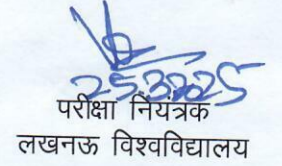 25.3.2025
परीक्षा नियंत्रक
लखनऊ विश्वविद्यालय